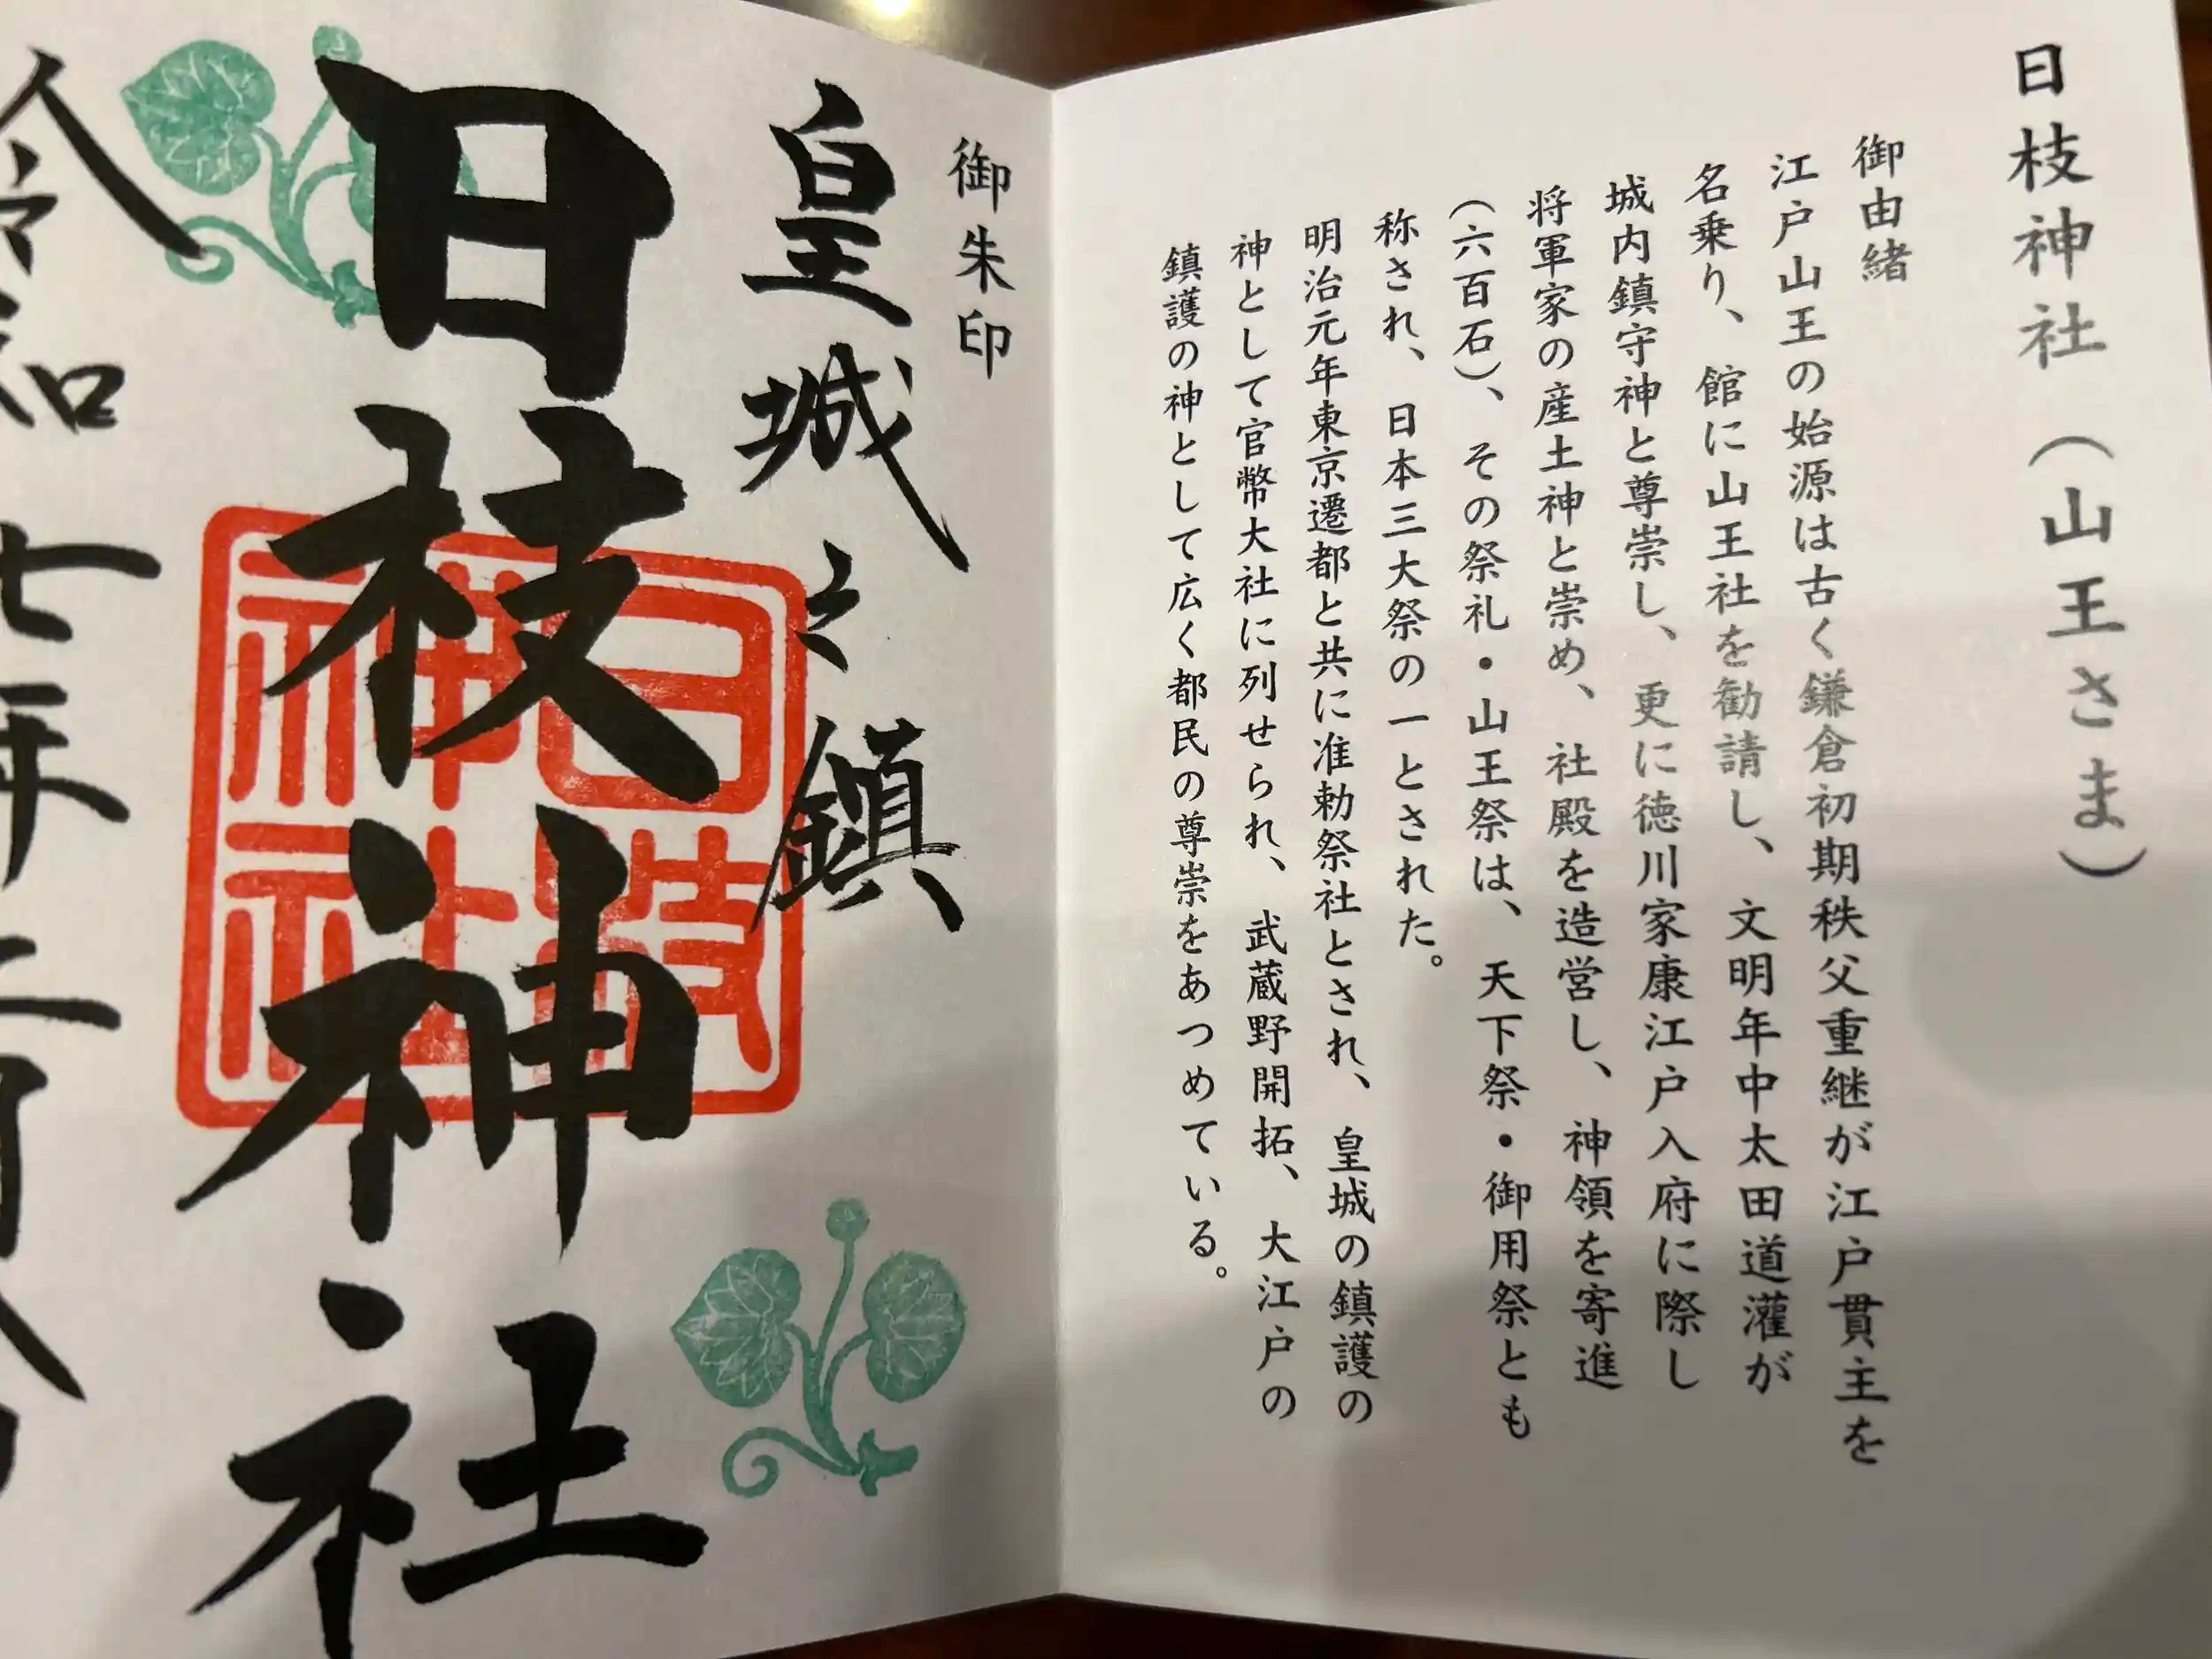 日枝神社（山王さま）
御由緒
江戸山王の始源は古く鎌倉初期秩父重継が江戸貫主を
名乗り、館に山王社を勧請し、文明年中太田道灌が
城内鎮守神と尊崇し、更に徳川家康江戸入府に際し
将軍家の産土神と崇め、社殿を造営し、神領を寄進
（六百石）、その祭礼・山王祭は、天下祭・御用祭とも
称され、日本三大祭の一とされた。
明治元年東京遷都と共に准勅祭社とされ、皇城の鎮護の
神として官幣大社に列せられ、武蔵野開拓、大江戸の
鎮護の神として広く都民の尊崇をあつめている。
御朱印
皇城之鎮
日枝神社
日枝神社
令和七年